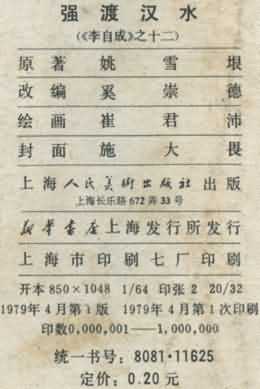 强渡汉水
(《李自成》之十二)
原著 姚雪垠
改编 奚崇德
绘画 崔君沛
封面 施大畏
上海人民美術出版社出版
上海长乐路672弄33号
新华書店上海发行所发行
上海市印刷七厂印刷
开本850×1048 1/64 印张2 20/32
1979年4月第1版 1979年4月第1次印刷
印数0,000,001——1,000,000
统一书号：8081·11625
定价：0.20元